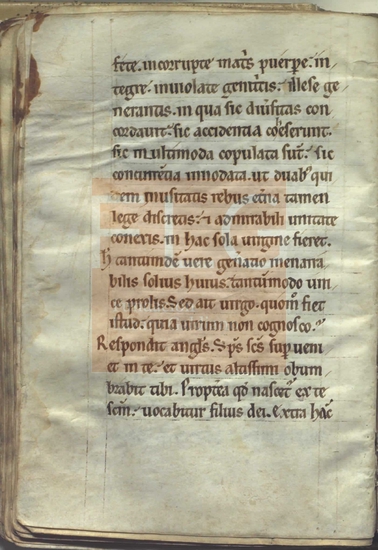 fete. incorrupte mat͛s puerpe: in
tegre. inuiolate genit͛is. illese ge
nerantis. in qua sic diuſitas con
cordauit. sic accidentia coheserunt.
sic multimoda copulata sūt. sic
concurrentia innodata. ut duabꝰ qui
dem inusitatis rebus et̃na tamen
lege discretis. ⁊ admirabili unitate
conexis. in hac sola uirgine fieret.
h tantundē uere geñatio
bilis solius huius. tantūmodo uni
ce prolis. Sed ait uirgo. quom̊ fiet
istud. quia uirum non cognosco.
Respondit angls̃. Sp̃s sc̃s sup̃uem
et in te. et uirtus altissimi obum
brabit tibi. Propt̃ea qđ nascet᷒ ex te
sc̃m. uocabitur filius dei. extra hāc